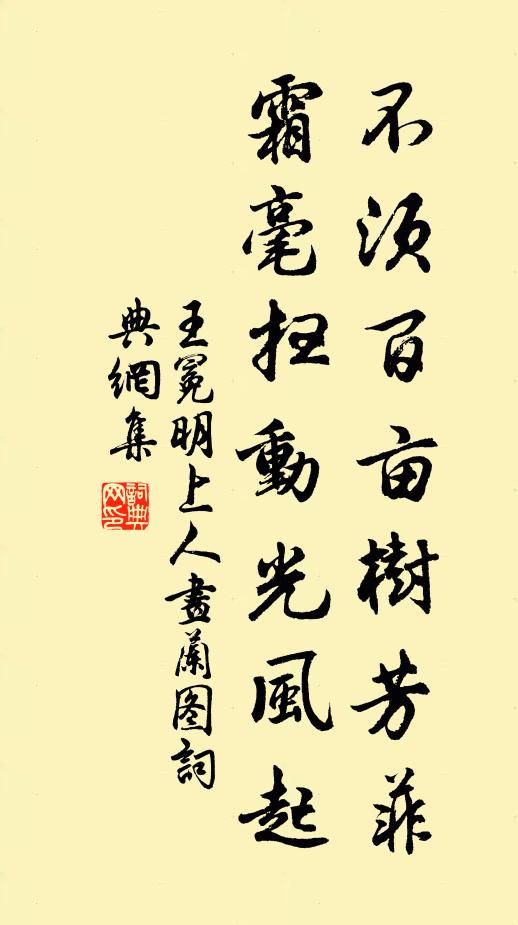 不須百亩樹芳菲
霜毫扫動光風起
王冕明上人畫蘭图詞
典網集
詞典
网印